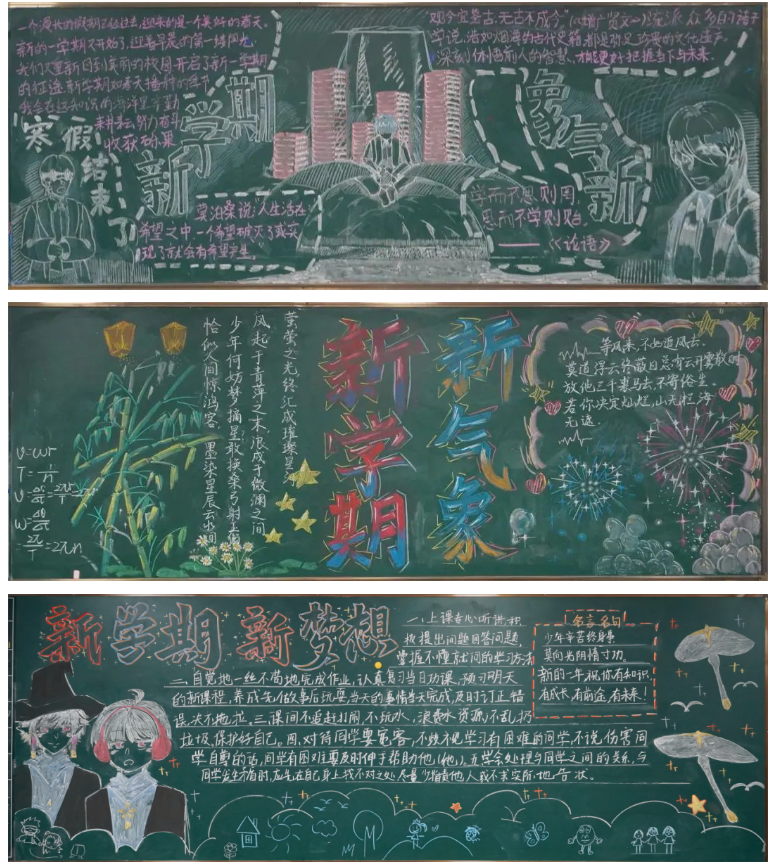 一个漫长的假期已经过去,迎来的是一个美好的春天。
新的一学期又开始了,迎着早晨的第一缕阳光,
我们又重新回到美丽的校园,开启了新一学期
的征途。新学期如春天播种的季节
我会在这知识的海洋里辛勤
耕耘,努力奋斗
收获硕果
寒假结束了
新学期
莫泊桑说:人生活在
希望之中一个希望破灭了或实
现了就会有希望产生。
观今宜鉴古,无古不成今
学说,浩如烟海的古代史籍,都是弥足珍贵的文化遗产。
深刻体悟前人的智慧,才能更好把握当下与未来。
象气新
学而不思则罔,
思而不学则殆
《论语》
萤萤之光终汇成璀璨星
风起于青萍之末,浪成于微澜之间
少年何妨梦摘星,敢挽桑弓射玉衡
恰似人间惊鸿客,墨染星辰云水间
新学期
新气象
等风来,不如追风去,
莫道浮云终蔽日,总有云开雾散时
放他三千裘马去,不寄俗生
若你决定灿烂,山无拦,海
无遮
v=ωr
新学期 新梦想
一、上课专心听讲,积
极提出问题回答问题,
掌握不懂就问的学习方法
二、自觉地一丝不苟地完成作业,认真复习当日功课,预习明天
的新课程,养成先做事后玩耍,当天的事情当天完成,及时订正错
误,决不拖拉,三、课间不追赶打闹,不玩水,浪费水资源,不乱扔
垃圾,保护好自己。四、对待同学要宽容,不歧视学习有困难的同学,不说伤害同
学自尊的话,同学有困难主要及时伸手帮助他(她),五、学会处理与同学之间的关系,与
同学发生矛盾时,应先在自己身上找不对之处,尽量少指责他人,我不求实际地告状。
名言名句
少年辛苦终身事
莫向光阴惰寸功。
新的一年,祝你有知识,
有成长,有前途,有未来!